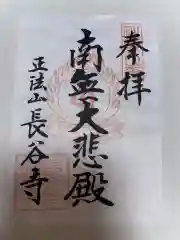 奉拝
南無大悲殿
正法山
長谷寺